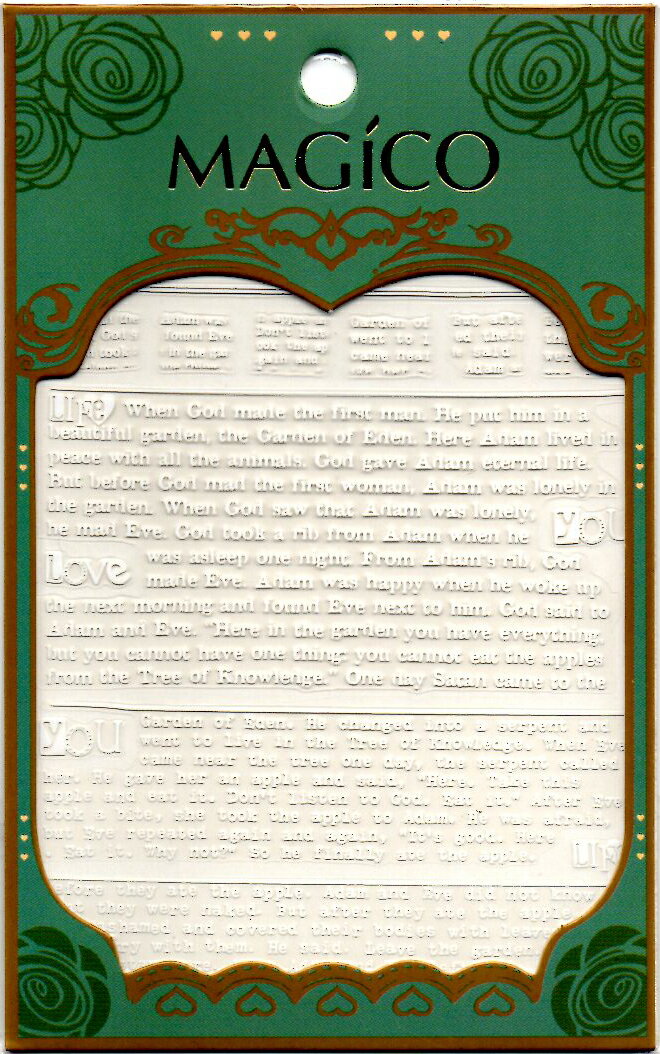 MAGÍCO
all the Adam was apple Garden of But afte
God's found Eve Don't went to l ed their
took in the gar came near said
Adam
Life When God made the first man. He put him in a
beautiful garden, the Garden of Eden. Here Adam lived in
peace with all the animals. God gave Adam eternal life.
But before God mad the first woman, Adam was lonely in
the garden. When God saw that Adam was lonely, you
he mad Eve. God took a rib from Adam when he
Love was asleep one night. From Adam's rib, God
made Eve. Adam was happy when he woke up
the next morning and found Eve next to him. God said to
Adam and Eve. "Here in the garden you have everything,
but you cannot have one thing: you cannot eat the apples
from the Tree of Knowledge." One day Satan came to the
you Garden of Eden. He changed into a serpent and
went to live in the Tree of Knowledge. When Eve
came near the tree one day, the serpent called
her. He gave her an apple and said, "Here. Take this
apple and eat it. Don't listen to God. Eat it." After Eve
took a bite, she took the apple to Adam. He was afraid,
but Eve repeated again and again, "It's good. Here
Eat it. Why not?" So he finally ate the apple. Life
efore they ate the apple. Adam and Eve did not know
they were naked. But after they ate the apple
shamed and covered their bodies with leave
ry with them. He said. leave the garden